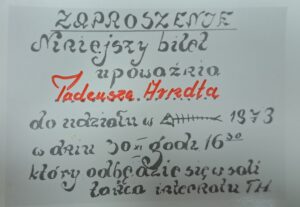 ZAPROSZENIE
Niniejszy bilet
upoważnia
Tadeusza Arndta
do udziału w 1973
w dniu 30 XI godz 16³⁰
który odbędzie się w sali
tańca internatu TH